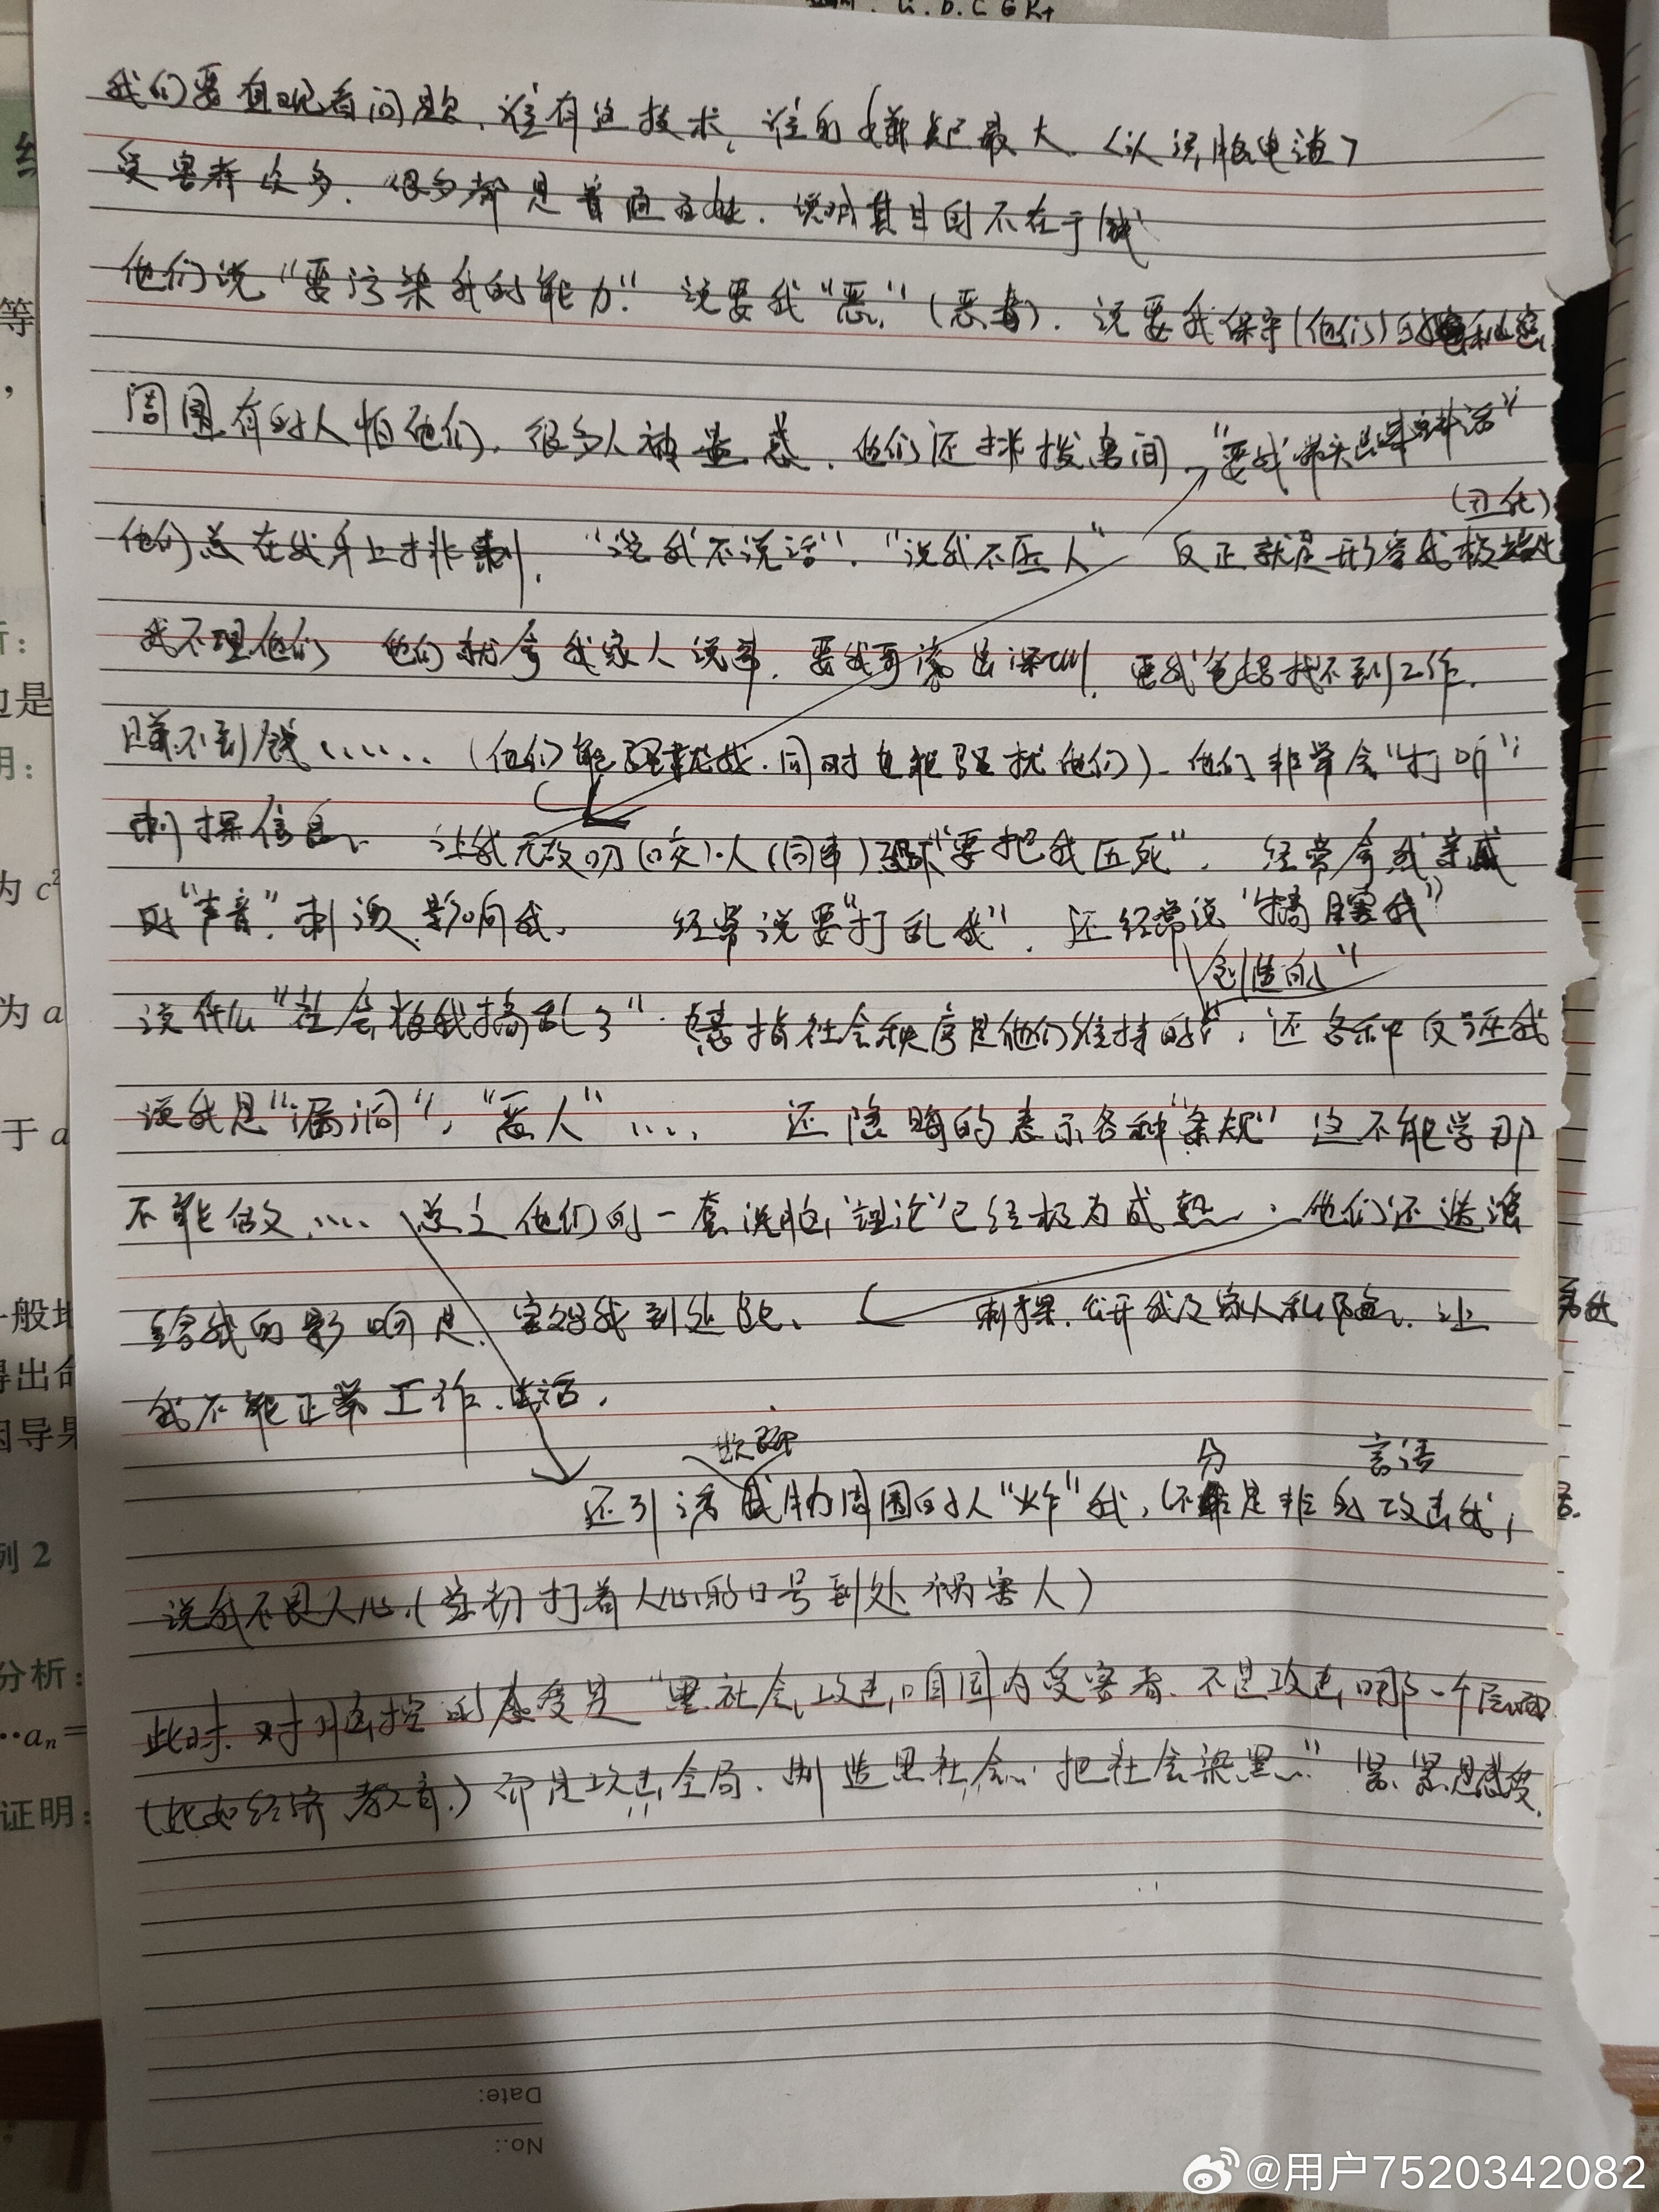 我们要直观看问题，谁有这技术，谁的嫌疑最大.
受害者众多.很多都是普通百姓.说明其目的不在于钱
他们说"要污染我的能力".说要我"恶"(恶毒).说要我保守(他们)的
周围有的人怕他们，很多人被蛊惑.他们还挑拨离间
他们总在我身上挑刺，"说我不说话"."说我不压人" 反正就是形容我极端化
(丑化)
我不理他们 他们就拿我家人说事，要我哥滚出深圳，要我爸妈找不到工作.
赚不到钱……(他们能骚扰我.同时也能骚扰他们).他们非常会"打听"
刺探信息、 让我无故叨(咬)人(同事) "要把我压死". 经常拿我亲戚
的"声音"刺激、影响我、 经常说要"打乱我".还经常说"搞瞎我"
创造的"
说什么"社会被我搞乱了".意指社会秩序是他们维持的",还各种反污我
说我是"漏洞","恶人"…… 还隐晦的表示各种"条规"这不能学那
不能做……总之他们的一套洗脑"理论"已经极为成熟、.他们还
给我的影响是、害得我到处跑、 刺探.公开我及家人私隐、让
我不能正常工作、生活.
欺骗 分 言话
还引诱 威胁周围的人"炸"我,(不分是非的攻击我,
说我不具人心.(学初打着人心的口号到处祸害人)
此时.对脑控的态度是"黑社会攻击咱国内受害者.不是攻击哪一个层面
(比如经济 教育.)而是攻击全局.制造黑社会.把社会染黑."紧紧是感受.
Date:
No.:
等
为 c²
为 a
于 a
一般地
得出命
因导果
列 2
分析:
··aₙ=
证明:
@用户7520342082